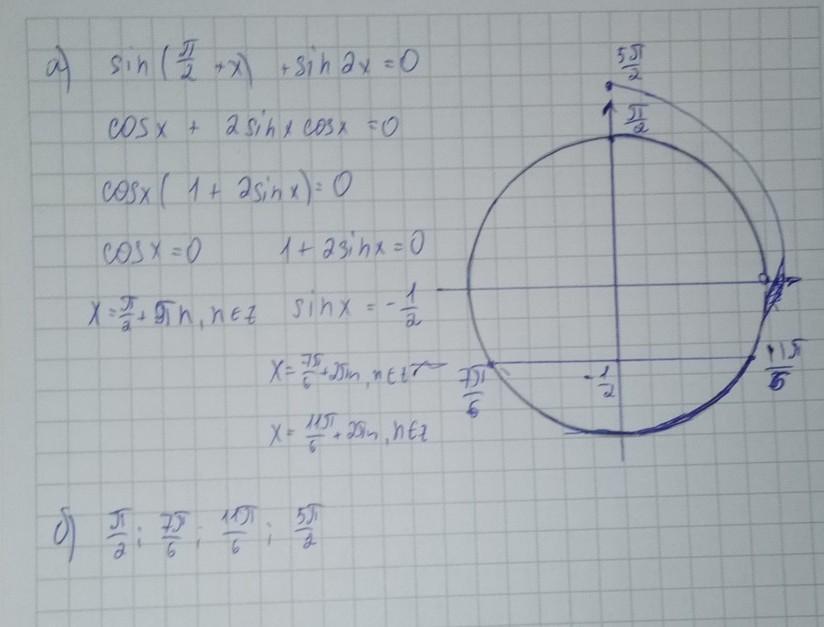 а) sin(π/2 + x) + sin2x = 0
cosx + 2sinx cosx = 0
cosx(1 + 2sinx) = 0
cosx = 0 1 + 2sinx = 0
x = π/2 + πn, n∈z sinx = -1/2
x = 7π/6 + 2πn, n∈z
x = 11π/6 + 2πn, n∈z
б) π/2; 7π/6; 11π/6; 5π/2
5π/2
π/2
7π/6
-1/2
11π/6